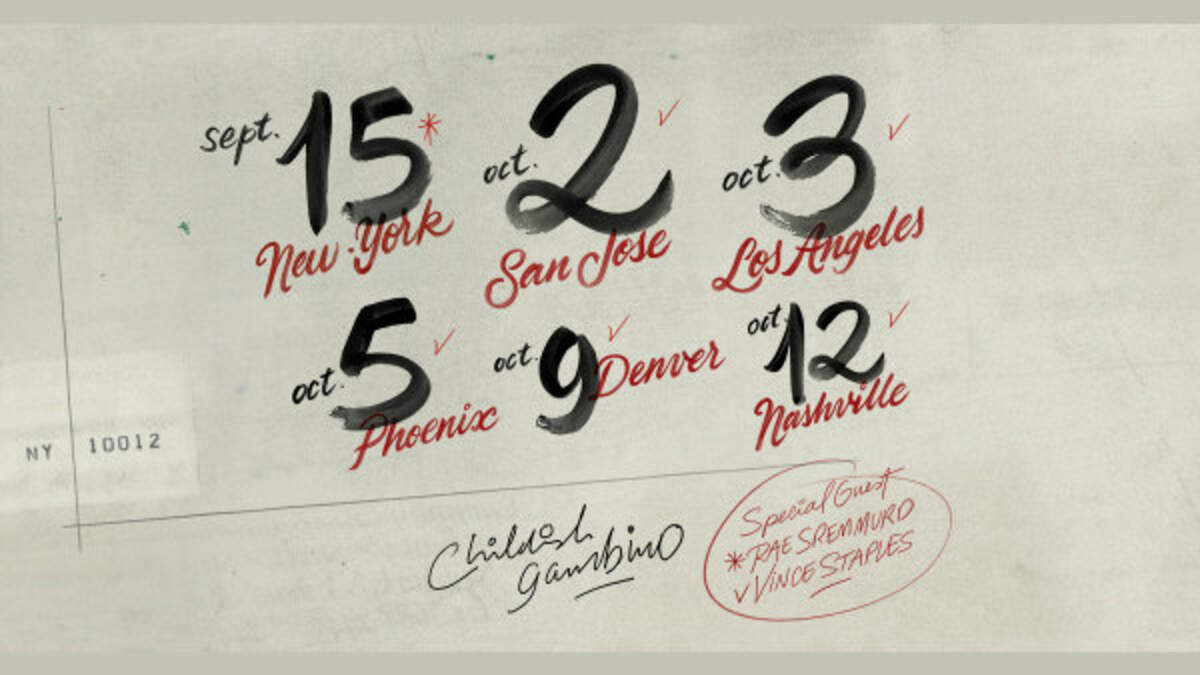 sept. 15 *
New-York
oct. 2 ✓
San Jose
oct. 3 ✓
Los Angeles
oct. 5 ✓
Phoenix
oct. 9 ✓
Denver
oct. 12 ✓
Nashville
NY 10012
Childish
gambino
Special Guest
* RAE SREMMURD
✓ VINCE STAPLES